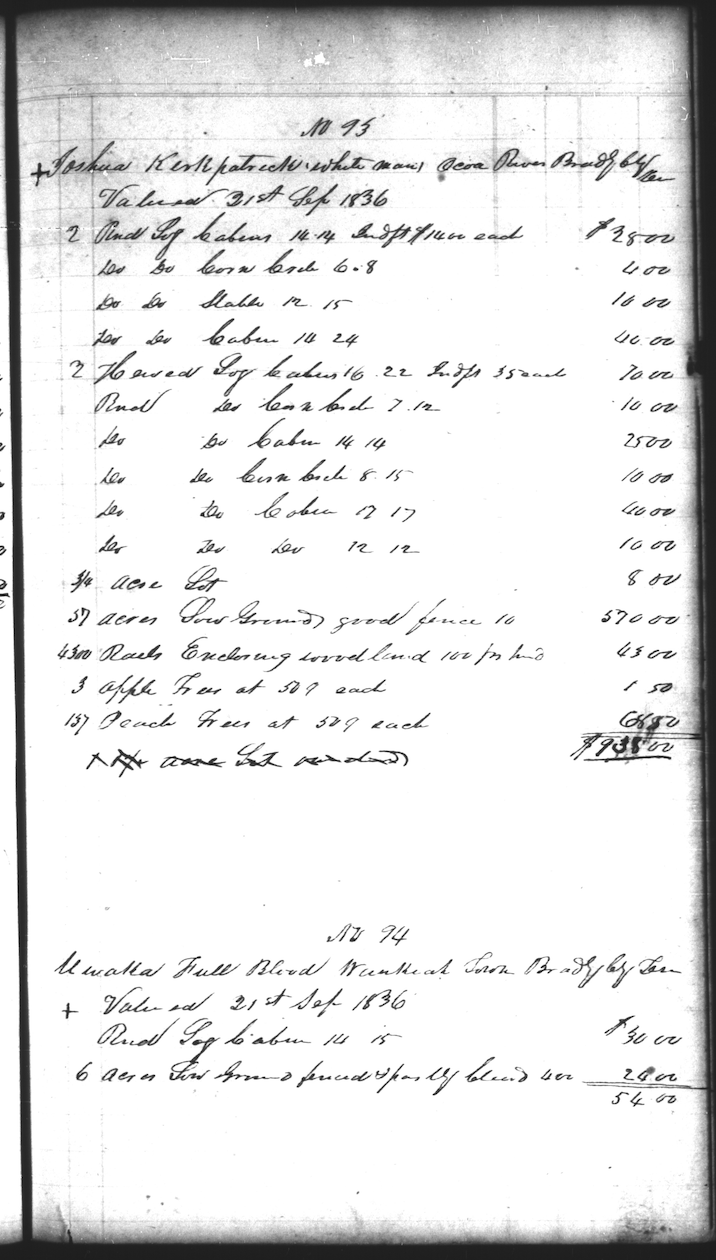 No 93
+ Joshua Kirkpatrick (white man) Ocoa River Bradly Cty Ten
Valued 21st Sep 1836
2 Rnd Log Cabins 14.14 Indft $14 00 each $28 00
Do Do Corn Crib 6.8 4 00
Do Do Stable 12.15 10 00
Do Do Cabin 14 24 40 00
2 Hewed Log Cabins 16.22 Indft 35 each 70 00
Rnd Do Corn Crib 7.12 10 00
Do Do Cabin 14 14 25 00
Do Do Corn Crib 8.15 10 00
Do Do Cabin 17 17 40 00
Do Do Do 12 12 10 00
3/4 acre Lot 8 00
57 acres Low Ground good fence 10 570 00
4300 Rails Enclosing woodland 100 pr hnd 43 00
3 Apple Trees at 50¢ each 1 50
137 Peach Trees at 50¢ each 68 50
$938 00
acre Lot
No 94
Uwaka Full Blood Town Bradly Cty Ten
+ Valued 21st Sep 1836
Rnd Log Cabin 14 15 $30 00
6 acres Low Ground fenced & partly cleard 4 00 24 00
54 00